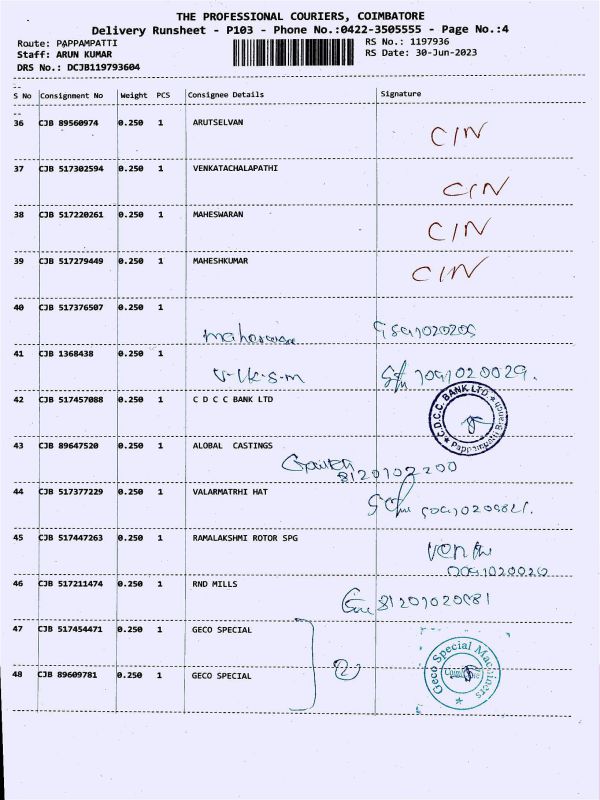 THE PROFESSIONAL COURIERS, COIMBATORE
Delivery Runsheet - P103 - Phone No.:0422-3505555 - Page No.:4
Route: PAPPAMPATTI RS No.: 1197936
Staff: ARUN KUMAR RS Date: 30-Jun-2023
DRS No.: DCJB119793604
--
S No Consignment No Weight PCS Consignee Details Signature
--
36 CJB 89560974 0.250 1 ARUTSELVAN
C/N
37 CJB 517302594 0.250 1 VENKATACHALAPATHI
C/N
38 CJB 517220261 0.250 1 MAHESWARAN
C/N
39 CJB 517279449 0.250 1 MAHESHKUMAR
C/N
40 CJB 517376507 0.250 1
41 CJB 1368438 0.250 1
V-I-K-S-M
42 CJB 517457088 0.250 1 C D C C BANK LTD
C.D.C.C. BANK LTD
Pappampatti Branch
43 CJB 89647520 0.250 1 ALOBAL CASTINGS
44 CJB 517377229 0.250 1 VALARMATRHI HAT
45 CJB 517447263 0.250 1 RAMALAKSHMI ROTOR SPG
46 CJB 517211474 0.250 1 RND MILLS
47 CJB 517454471 0.250 1 GECO SPECIAL
2
Geco Special Machiners
48 CJB 89609781 0.250 1 GECO SPECIAL